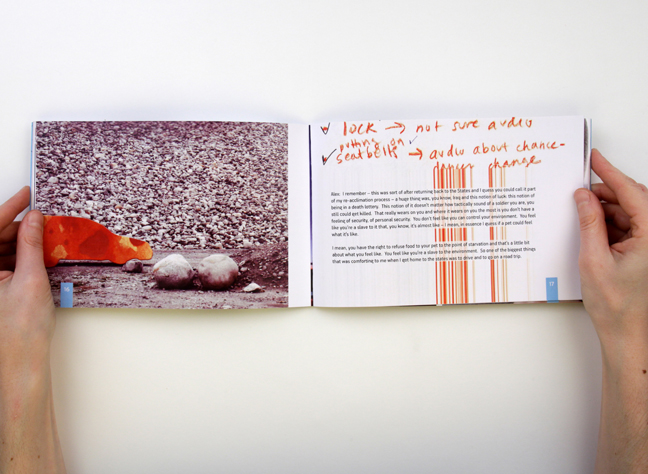 16
✓ lock → not sure audio
putting on ✓
✓ seatbelts → audio about chance-
danger change
Alex: I remember – this was sort of after returning back to the States and I guess you could call it part
of my re-acclimation process – a huge thing was, you know, Iraq and this notion of luck: this notion of
being in death lottery. This notion of it doesn't matter how tactically sound of a soldier you are, you
still could get killed. That really wears on you and where it wears on you the most is you don't have a
feeling of security, of personal security. You don't feel like you can control your environment. You feel
like you're a slave to it that, you know, it's almost like – I mean, in essence I guess if a pet could feel
what it's like.
I mean, you have the right to refuse food to your pet to the point of starvation and that's a little bit
about what you feel like. You feel like you're a slave to the environment. So one of the biggest things
that was comforting to me when I got home to the states was to drive and to go on a road trip.
17